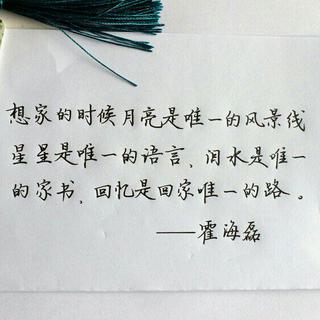 想家的时候月亮是唯一的风景线
星星是唯一的语言、泪水是唯一
的家书、回忆是回家唯一的路。
——霍海磊